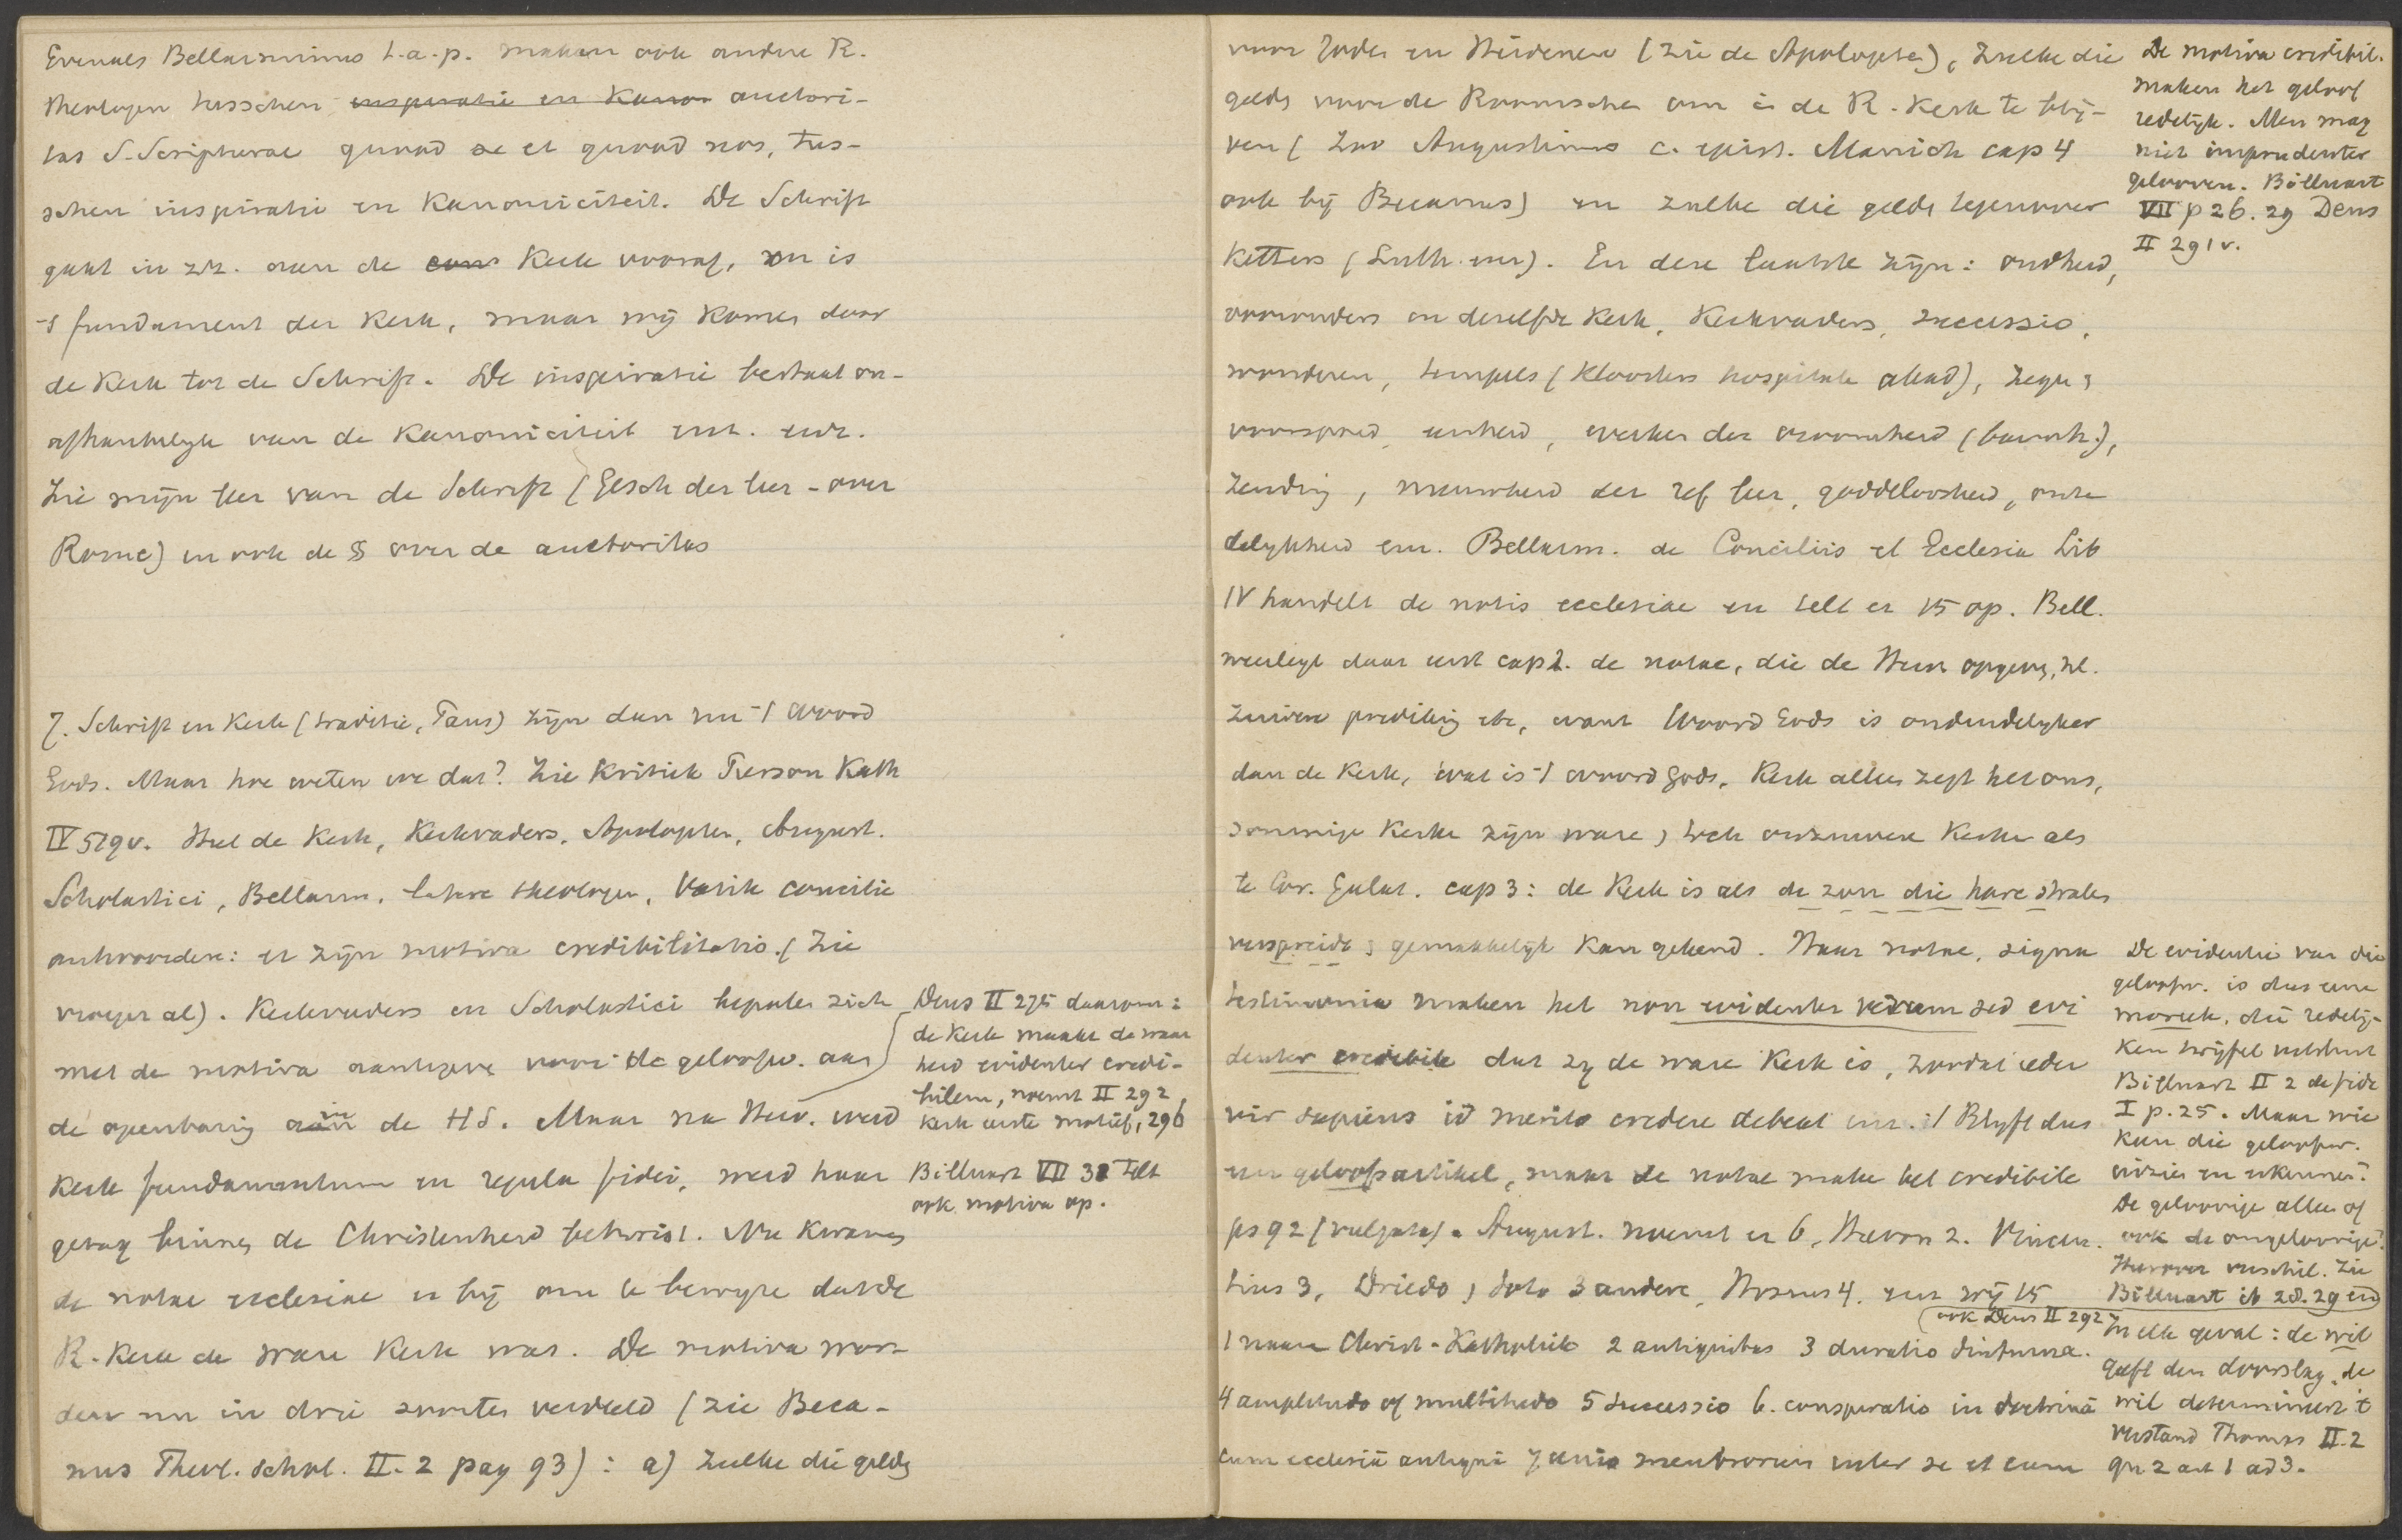 Evenals Bellarminus t.a.p. maken ook andere R.
theologen tusschen inspiratie en Kanon auctori-
tas S. Scripturae quoad se et quoad nos, tus-
schen inspiratie en Kanoniciteit. De Schrift
gaat in zk. aan de Kerk vooraf, en is
't fundament der Kerk, maar wij komen door
de Kerk tot de Schrift. De inspiratie bestaat on-
afhankelijk van de Kanoniciteit enz. enz.
Zie mijn leer van de Schrift (Gesch der leer - over
Rome) en ook de § over de auctoritas
7. Schrift en Kerk (traditie, Paus) zijn dan nu 't woord
Gods. Maar hoe weten we dat? Zie Kritiek Pierson Kath
IV 519v. Heel de Kerk, Kerkvaders, Apologeten, August.
Scholastici, Bellarm. latere theologen, Vatik concilie
antwoorden: er zijn motiva credibilitatis. (Zie
vroeger al). Kerkvaders en Scholastici bepalen zich
met de motiva aantegeven voor de geloofw. van
de openbaring in de HS. Maar na Herv. werd
Kerk fundamentum en regula fidei, werd haar
gezag binnen de Christenheid betwist. Nu kwamen
de notae ecclesiae er bij om te bewijze dat de
R. Kerk de ware Kerk was. De motiva wor-
den nu in drie soorten verdeeld (zie Beca-
nus Theol. schol. II. 2 pag 93): a) zulke die gelden
Dens II 275 daarom:
de Kerk maakt de waar
heid evidenter credi-
bilem, noemt II 292
Kerk eerste motief, 296
Billuart VII 32 telt
ook motiva op.
voor Joden en Heidenen (zie de Apologeten), zulke die
gelds voor de Roomschen om in de R. Kerk te blij-
ven (zoo Augustinus c. epist. Manich cap 4
ook bij Becanus) en zulke die gelds tegenover
Ketters (Luth. enz). En deze laatste zijn: oudheid,
voorouders in dezelfde Kerk, Kerkvaders, successio,
wonderen, tempels (Kloosters hospitale acad), zegen,
voorspoed, eenheid, werken der vroomheid (barmh.),
Zending, nieuwheid der ref leer, goddeloosheid, onze
delijkheid enz. Bellarm. de Conciliis et Ecclesia Lib
IV handelt de notis ecclesiae en telt er 15 op. Bell.
weerlegt daar eerst cap 2. de notae, die de Herv opgeven, nl.
zuivere prediking etc, want Woord Gods is onduidelijker
dan de Kerk, wat is 't woord Gods, Kerk alleen zegt het ons,
sommige Kerke zijn ware, toch onzuivere Kerken als
te Cor. Galat. cap 3: de Kerk is als de zon die hare stralen
verspreidt, gemakkelijk kan gekend. Haar notae, signa
testimonia maken het non evidenter verum sed evi
denter credibile dat zij de ware Kerk is, zoodat ieder
vir sapiens id merito credere debeat enz. 't Blijft dus
een geloofsartikel, maar de notae make het credibile
ps 92 (vulgata). August. noemt er 6, Hieron 2. Vincen.
tius 3, Driedo, Soto 3 andere, Hosius 4, enz wij 15
1 naam Christ-Katholiek 2 antiquitas 3 duratio diuturna.
4 amplitudo of multitudo 5 Successio 6. conspiratio in doctrinâ
cum ecclesiâ antiquâ 7 unio membrorum inter se et cum
De motiva credibil.
maken het geloof
redelijk. Men mag
niet imprudenter
gelooven. Billuart
VII p 26. 29 Dens
II 291v.
De evidentie van die
geloofw. is dus eene
moreele, die redelij-
ken twijfel uitsluit
Billuart II 2 de fide
I p. 25. Maar wie
kan die geloofw.
inzien en erkennen?
De geloovige alleen of
ook de ongeloovige?
Hierover verschil. Zie
Billuart ib 28. 29 en
ook Dens II 292
In elk geval: de wil
geeft den doorslag, de
wil determineert 't
verstand Thomas II. 2
qu 2 art 1 ad 3.